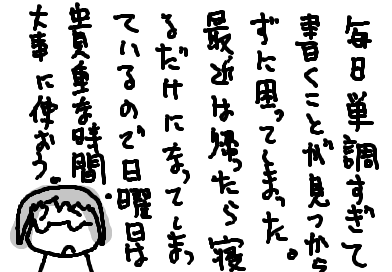 毎日単調すぎて
書くことが見つから
ずに困ってしまった。
最近は帰ったら寝
るだけになってしまっ
ているので日曜日は
貴重な時間。
大事に使おう。